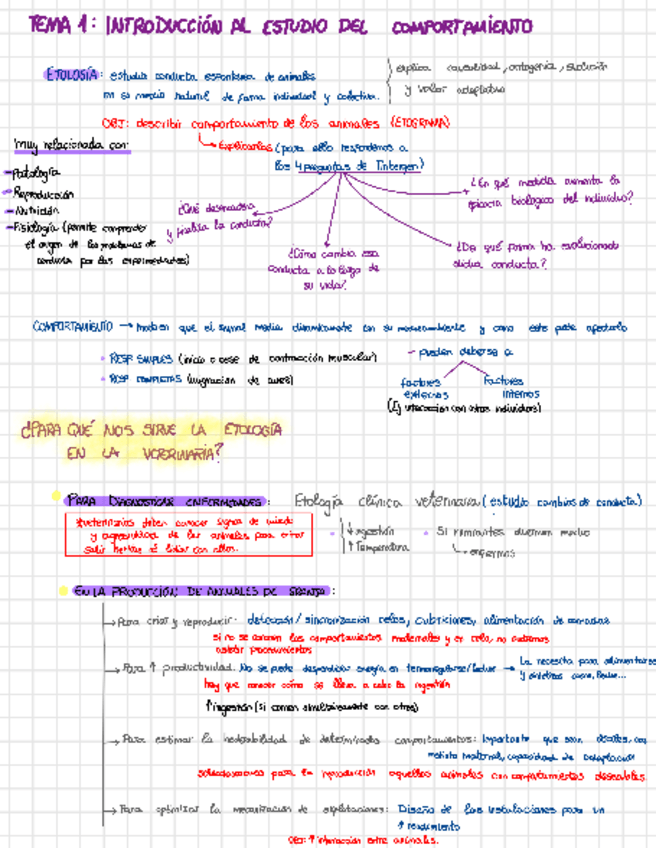 TEMA 1: INTRODUCCIÓN AL ESTUDIO DEL COMPORTAMIENTO
ETOLOGÍA: estudia conducta espontánea de animales
en su medio natural de forma individual y colectiva.
explica causalidad, ontogenia, evolución
y valor adaptativo
OBJ: describir comportamiento de los animales (ETOGRAMA)
Explicarlos (para ello respondemos a
las 4 preguntas de Tinbergen)
muy relacionada con:
- Patología
- Reproducción
- Nutrición
- Fisiología (permite comprender
el origen de los problemas de
conducta por las enfermedades)
¿Qué desencadena
y finaliza la conducta?
¿Cómo cambia esa
conducta a lo largo de
su vida?
¿En qué medida aumenta la
eficacia biológica del individuo?
¿De qué forma ha evolucionado
dicha conducta?
COMPORTAMIENTO → que el animal media dinámicamente en su medioambiente y como este puede afectarlo
• RESP SIMPLES (inicio o cese de contracción muscular)
• RESP COMPLETAS (migración de aves)
- pueden deberse a
factores
externos
factores
internos
(Ej interacción con otros individuos)
¿PARA QUÉ NOS SIRVE LA ETOLOGÍA
EN LA VETERINARIA?
PARA DIAGNOSTICAR ENFERMEDADES: Etología clínica veterinaria (estudio cambios de conducta)
*veterinarios deben conocer signos de miedo
y agresividad de los animales para evitar
salir heridos al lidiar con ellos.
• ↓ingestión
↑Temperatura
• Si rumiantes duermen mucho
enfermos
EN LA PRODUCCIÓN DE ANIMALES DE GRANJA:
→ Para criar y reproducir: detección/sincronización celos, cubriciones, alimentación de camadas
si no se conocen los comportamientos maternales y en celo, no podremos
→ Para ↑ productividad. No se puede desperdiciar energía en termorregularse/luchar → La necesita para alimentarse
y sintetizar carne, leche...
hay que conocer cómo se lleva a cabo la ingestión
↑ingestión (si comen simultáneamente con otros)
→ Para estimar la heredabilidad de determinados comportamientos: Importante que sean dóciles, con
instinto maternal, capacidad de adaptación
seleccionamos para la reproducción aquellos animales con comportamientos deseables.
→ Para optimizar la mecanización de explotaciones: Diseño de las instalaciones para un
↑ rendimiento
OBJ: ↑ interacción entre animales.